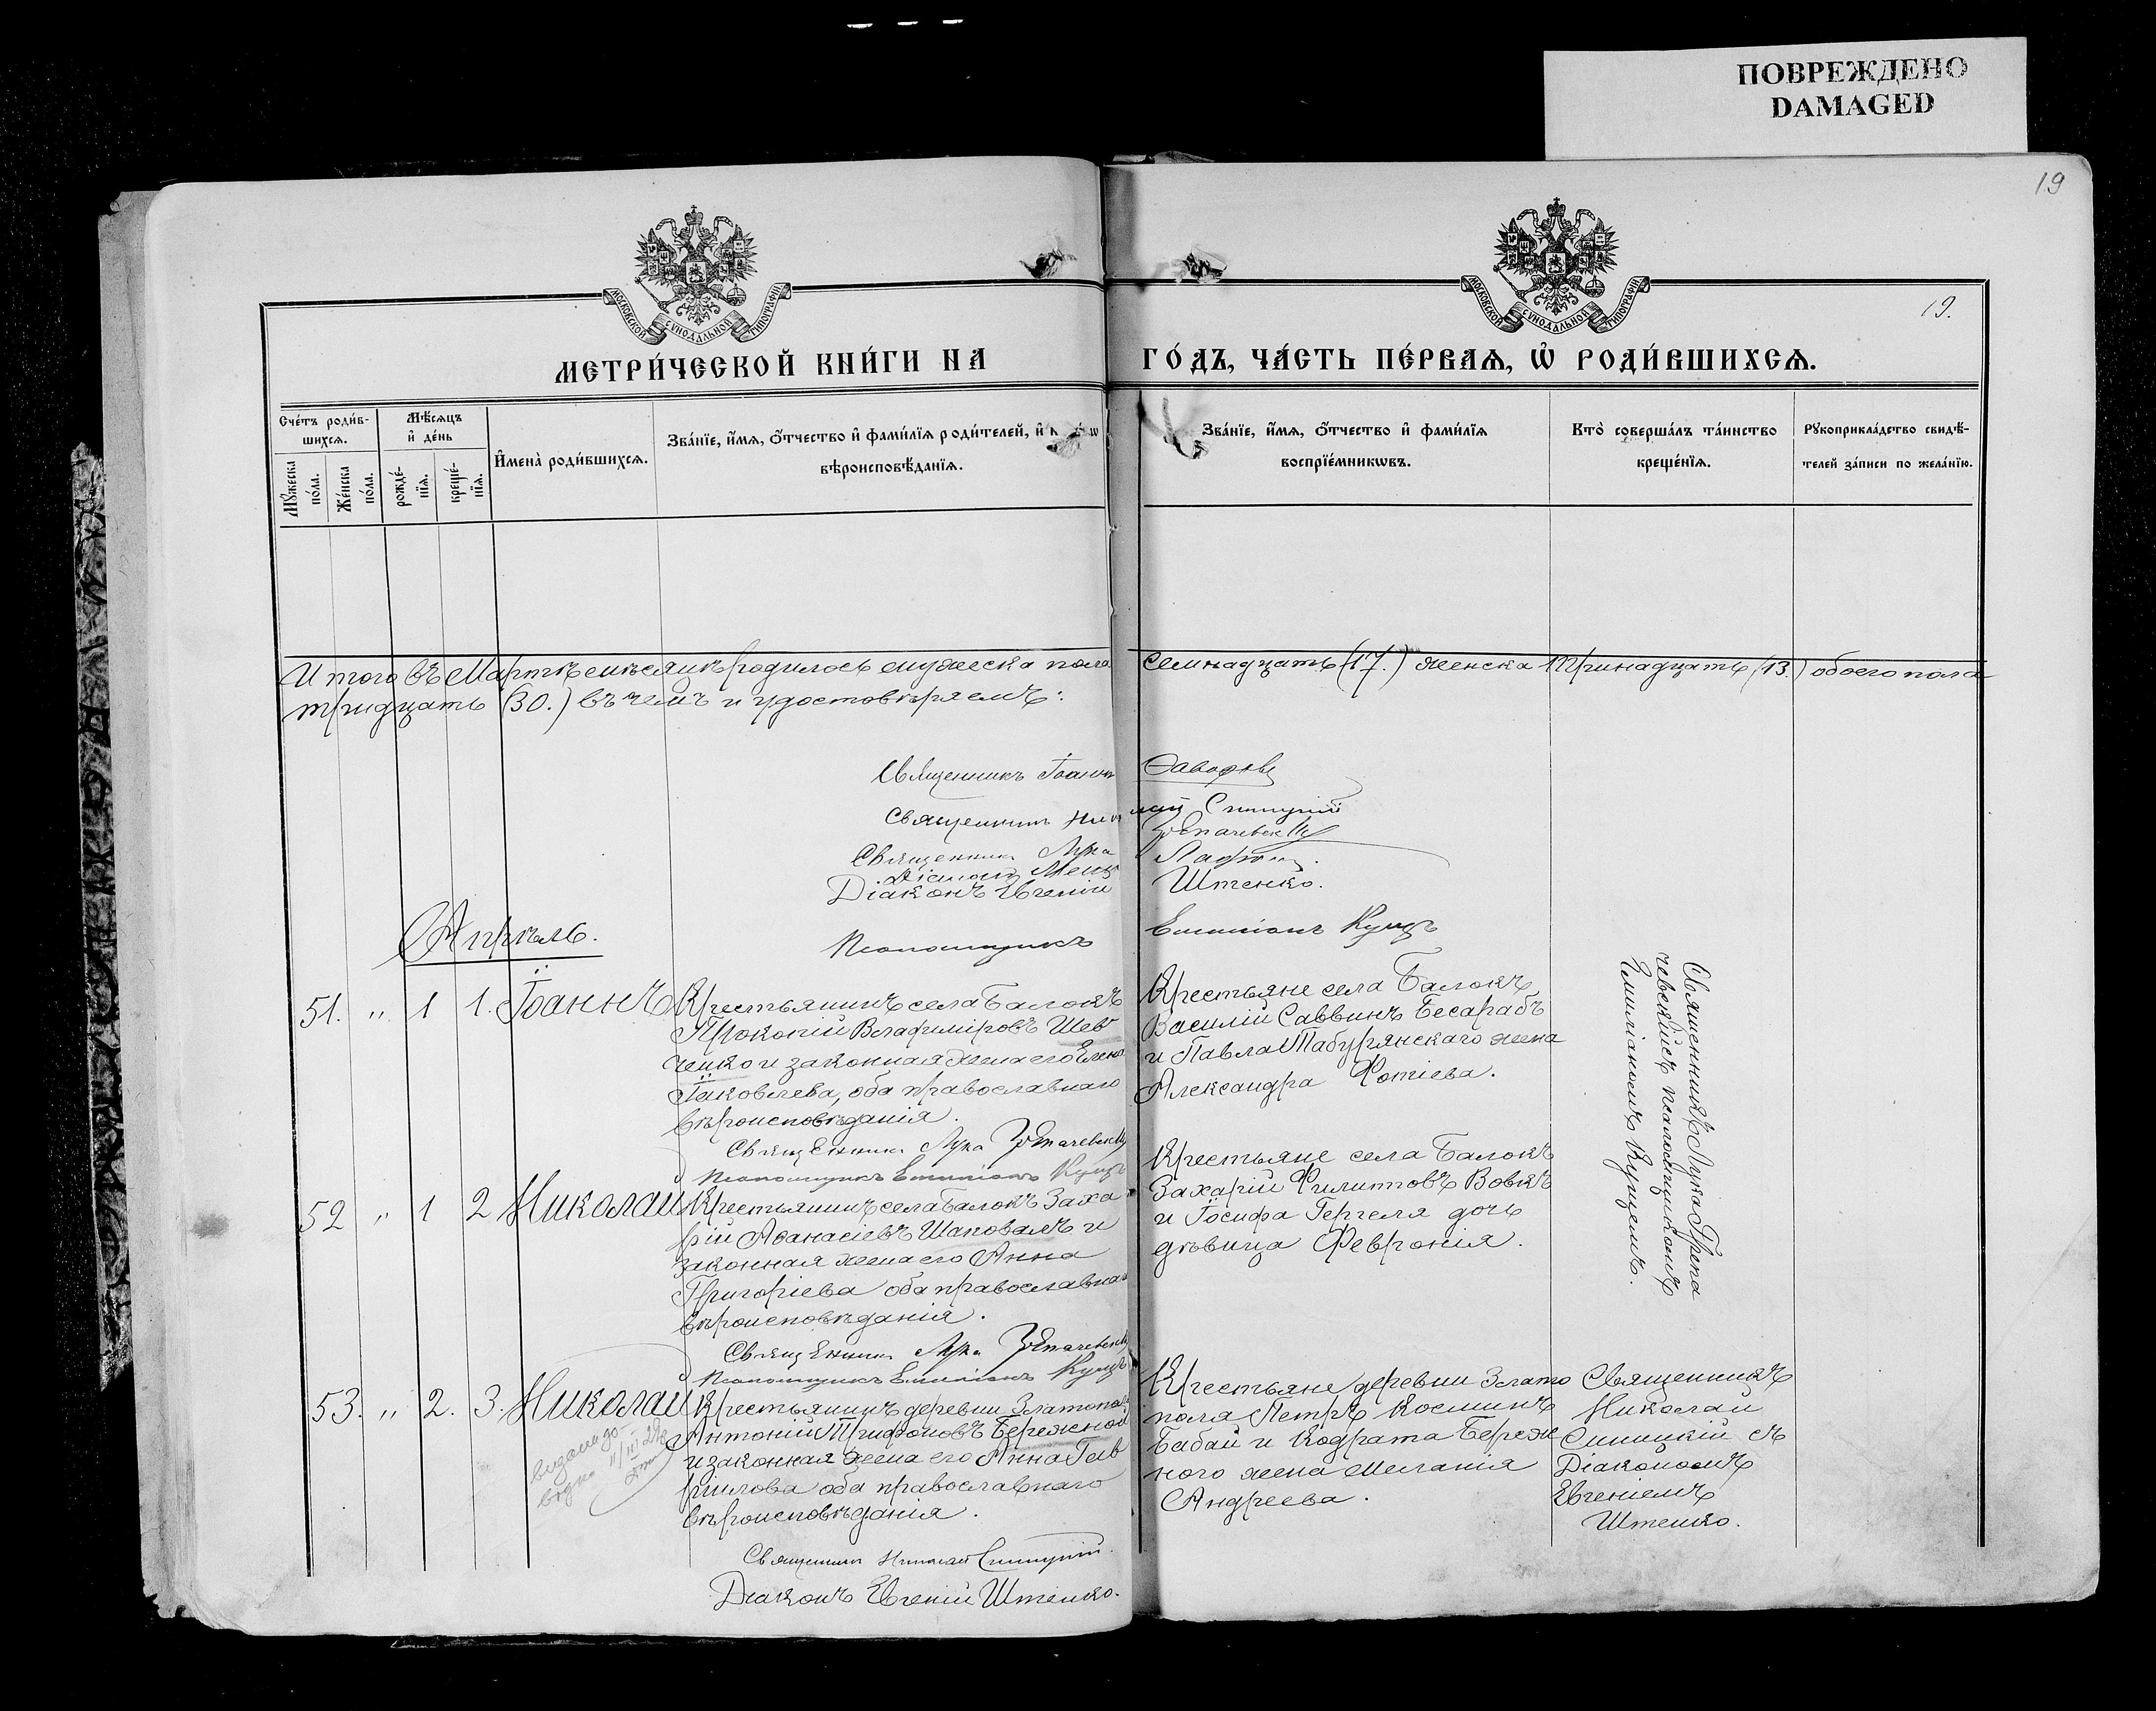 ПОВРЕЖДЕНО
DAMAGED
19
МОСКОВСКОЙ СѴНОДАЛЬНОЙ ТИПОГРАФІИ
МОСКОВСКОЙ СѴНОДАЛЬНОЙ ТИПОГРАФІИ
19.
МЕТРИ́ЧЕСКОЙ КНИ́ГИ НА ГО́ДЪ, ЧА́СТЬ ПЕ́РВАѦ, Ѡ҆ РОДИ́ВШИХСѦ.
Сче́тъ роди́в-
шихсѧ.
Мꙋ́жеска
по́ла.
Же́нска
по́ла.
Мѣ́сѧцъ
и҆ де́нь
рожде́-
нїѧ.
креще́-
нїѧ.
И҆мена̀ роди́вшихсѧ.
Зва́нїе, и҆́мѧ, о҆́тчество и҆ фами́лїѧ роди́телей, и҆
вѣроисповѣ́данїѧ.
Зва́нїе, и҆́мѧ, о҆́тчество и҆ фами́лїѧ
воспрїе́мникѡвъ.
Кто̀ соверша́лъ та́инство
креще́нїѧ.
Рꙋкоприкла́дство свидѣ́-
телей за́писи по жела́нїю.
Итого въ Мартѣ мѣсяцѣ родилось мужеска пола семнадцать (17.) женска тринадцать (13.) обоего пола
тридцать (30.) въ чемъ и удостовѣряемъ:
Священникъ Іоаннъ
Священникъ Николай Синицкій
Священникъ Лука
Діаконъ
Діаконъ Евгеній Штенко.
Псаломщикъ Емиліанъ Куцъ
Апрѣль.
51. " 1 1. Іоаннъ
Крестьянинъ села Балокъ
Прокопій Владиміровъ Шев
ченко и законная жена его Елена
Іаковлева, оба православнаго
вѣроисповѣданія.
Священникъ Лука
Псаломщикъ Емиліанъ Куцъ
Крестьяне села Балокъ
Василій Саввинъ Бесарабъ
и Павла Табурянскаго жена
Александра Фотіева.
Священникъ Лука Грепа
чевскійсъ псаломщикомъ
Емиліаномъ Куцемъ.
52 " 1 2 Николай
Крестьянинъ села Балокъ Заха
рій Аѳанасіевъ Шаповалъ и
законная жена его Анна
Григоріева оба православнаго
вѣроисповѣданія.
Священникъ Лука
Псаломщикъ Емиліанъ Куцъ
Крестьяне села Балокъ
Захарій Филипповъ Вовкъ
и Іосифа Гергеля дочь
дѣвица Февронія.
53. " 2. 3. Николай
Крестьянинъ деревни Златополя
Антоній Трифоновъ Бережной
и законная жена его Анна Гав
риилова оба православнаго
вѣроисповѣданія.
Священникъ Николай Синицкій.
Діаконъ Евгеній Штенко.
Крестьяне деревни Злато
поля Петръ Косминъ
Бабай и Кодрата Береж
ного жена Меланія
Андреева.
Священникъ
Николай
Синицкій съ
Діакономъ
Евгеніемъ
Штенко.